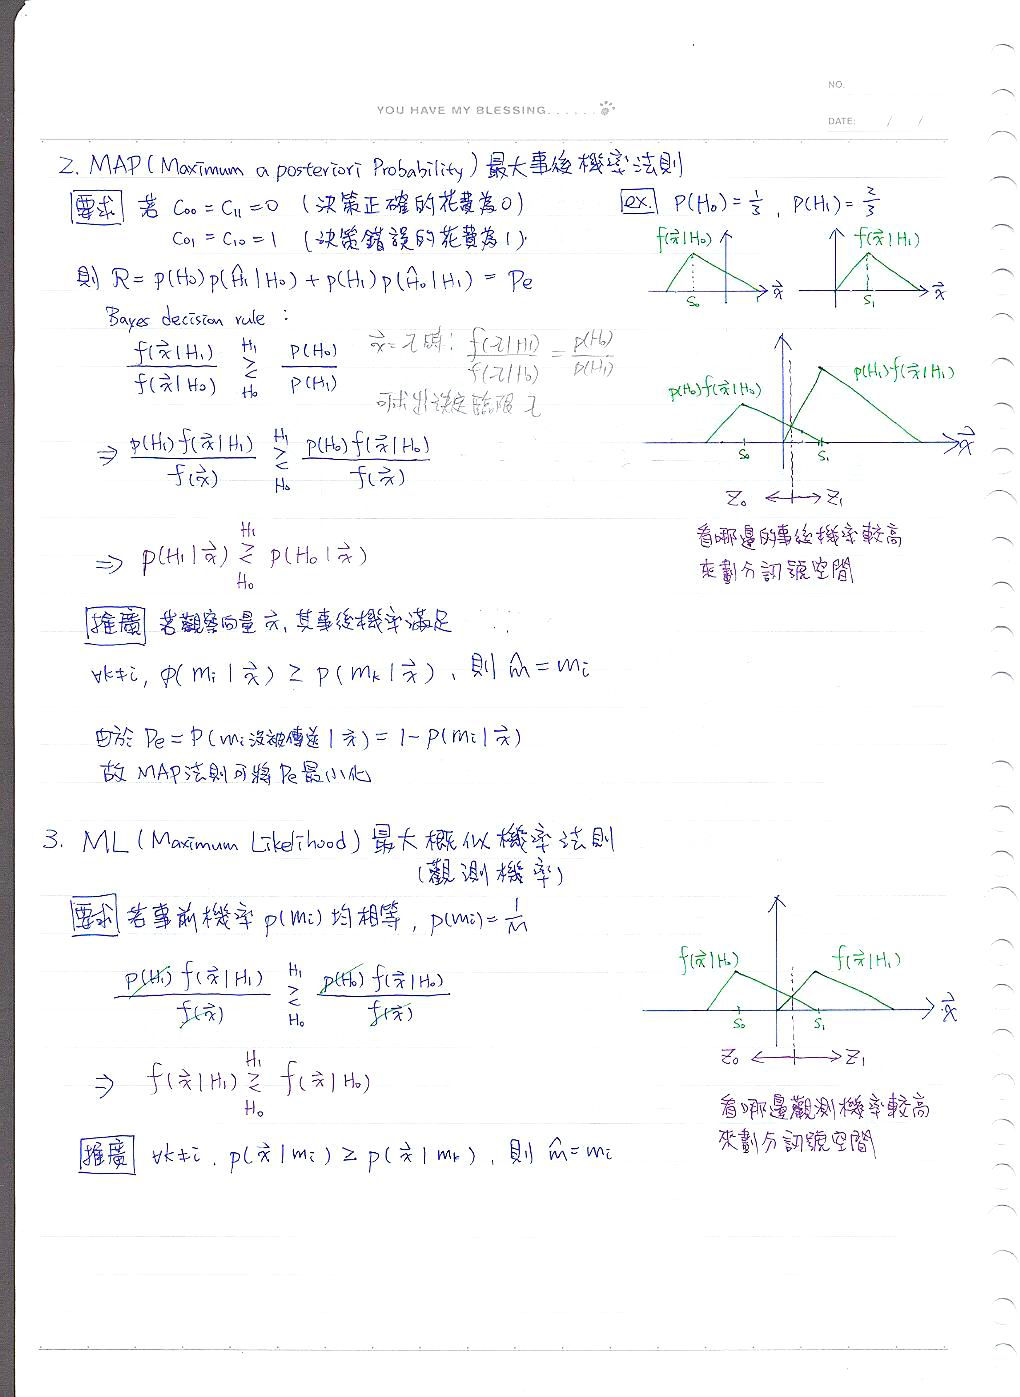 NO.
YOU HAVE MY BLESSING......
DATE: / /
2. MAP (Maximum a posteriori Probability) 最大事後機率法則
要求 若 C₀₀ = C₁₁ = 0 (決策正確的花費為0)
C₀₁ = C₁₀ = 1 (決策錯誤的花費為1).
則 R = p(H₀)p(Ĥ₁|H₀) + p(H₁)p(Ĥ₀|H₁) = Pe
Bayes decision rule :
f(x⃗|H₁) / f(x⃗|H₀) ≷ p(H₀) / p(H₁) H₁ H₀
x⃗=τ時: f(τ|H₁) / f(τ|H₀) = p(H₀) / p(H₁)
可求出決定臨限 τ
⇒ p(H₁)f(x⃗|H₁) / f(x⃗) ≷ p(H₀)f(x⃗|H₀) / f(x⃗) H₁ H₀
⇒ p(H₁|x⃗) ≷ p(H₀|x⃗) H₁ H₀
推廣 若觀察向量 x⃗, 其事後機率滿足
∀k≠i, p(mᵢ|x⃗) ≥ p(mₖ|x⃗), 則 m̂ = mᵢ
由於 Pe = P(mᵢ沒被傳送|x⃗) = 1-P(mᵢ|x⃗)
故 MAP法則可將Pe最小化
ex. P(H₀) = 1/3, P(H₁) = 2/3
f(x⃗|H₀) f(x⃗|H₁)
S₀ x⃗ S₁ x⃗
p(H₀)f(x⃗|H₀) p(H₁)f(x⃗|H₁)
S₀ S₁ x⃗
Z₀ ←→ Z₁
看哪邊的事後機率較高
來劃分訊號空間
3. ML (Maximum Likelihood) 最大概似機率法則
(觀測機率)
要求 若事前機率 p(mᵢ) 均相等, p(mᵢ) = 1/M
p(H₁)f(x⃗|H₁) / f(x⃗) ≷ p(H₀)f(x⃗|H₀) / f(x⃗) H₁ H₀
⇒ f(x⃗|H₁) ≷ f(x⃗|H₀) H₁ H₀
推廣 ∀k≠i, p(x⃗|mᵢ) ≥ p(x⃗|mₖ), 則 m̂ = mᵢ
f(x⃗|H₀) f(x⃗|H₁)
S₀ S₁ x⃗
Z₀ ←→ Z₁
看哪邊觀測機率較高
來劃分訊號空間